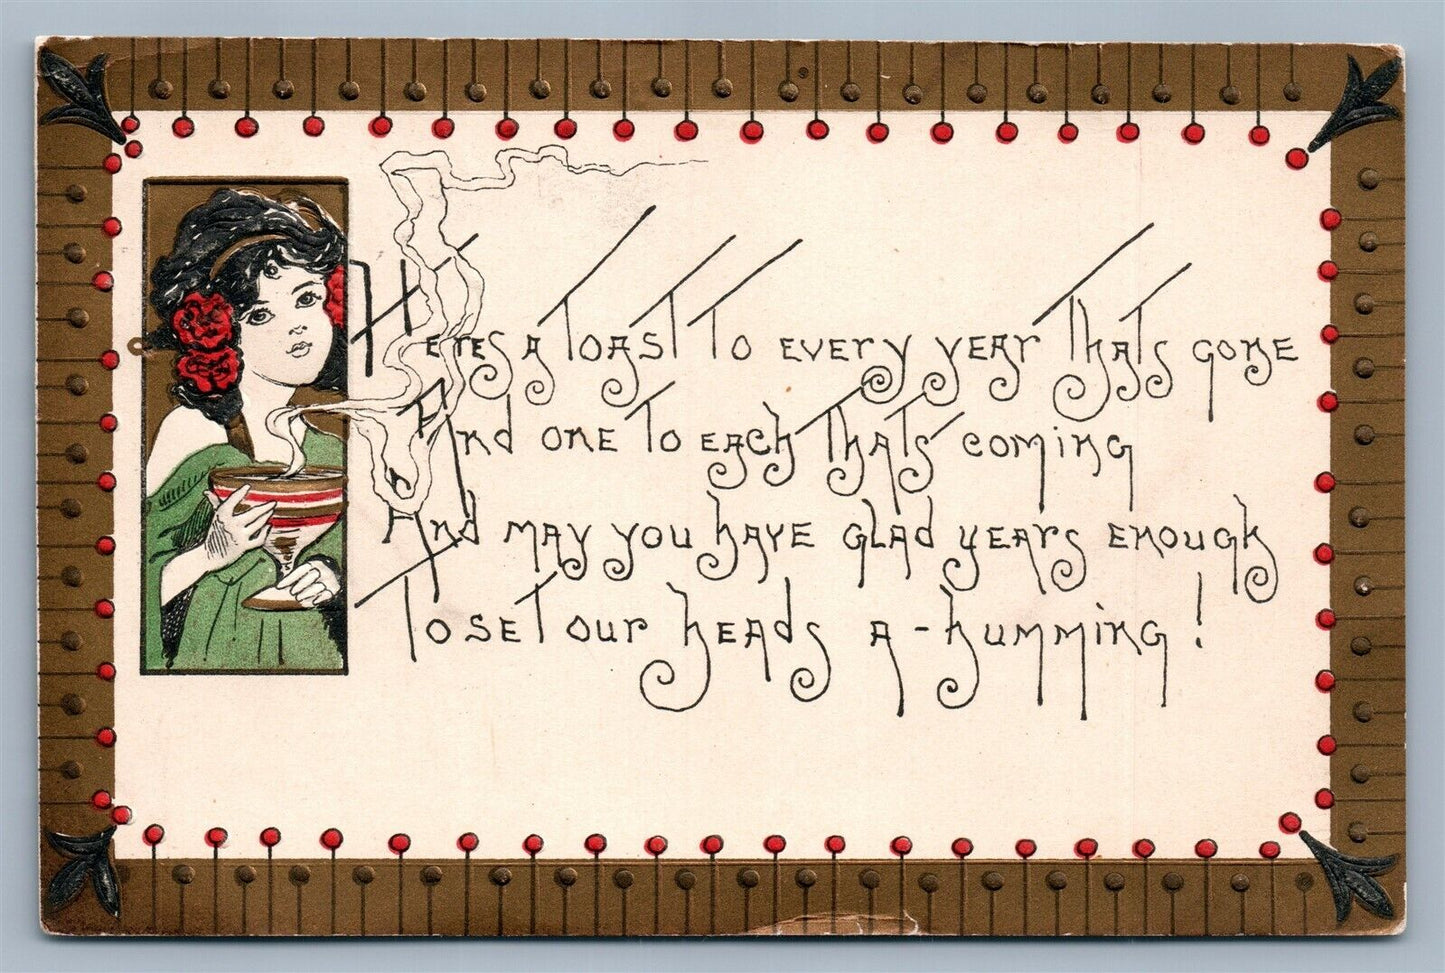 Heres a Toast To every year Thats gone
And one To each Thats coming
And may you have glad years enough
To set our heads a-humming!